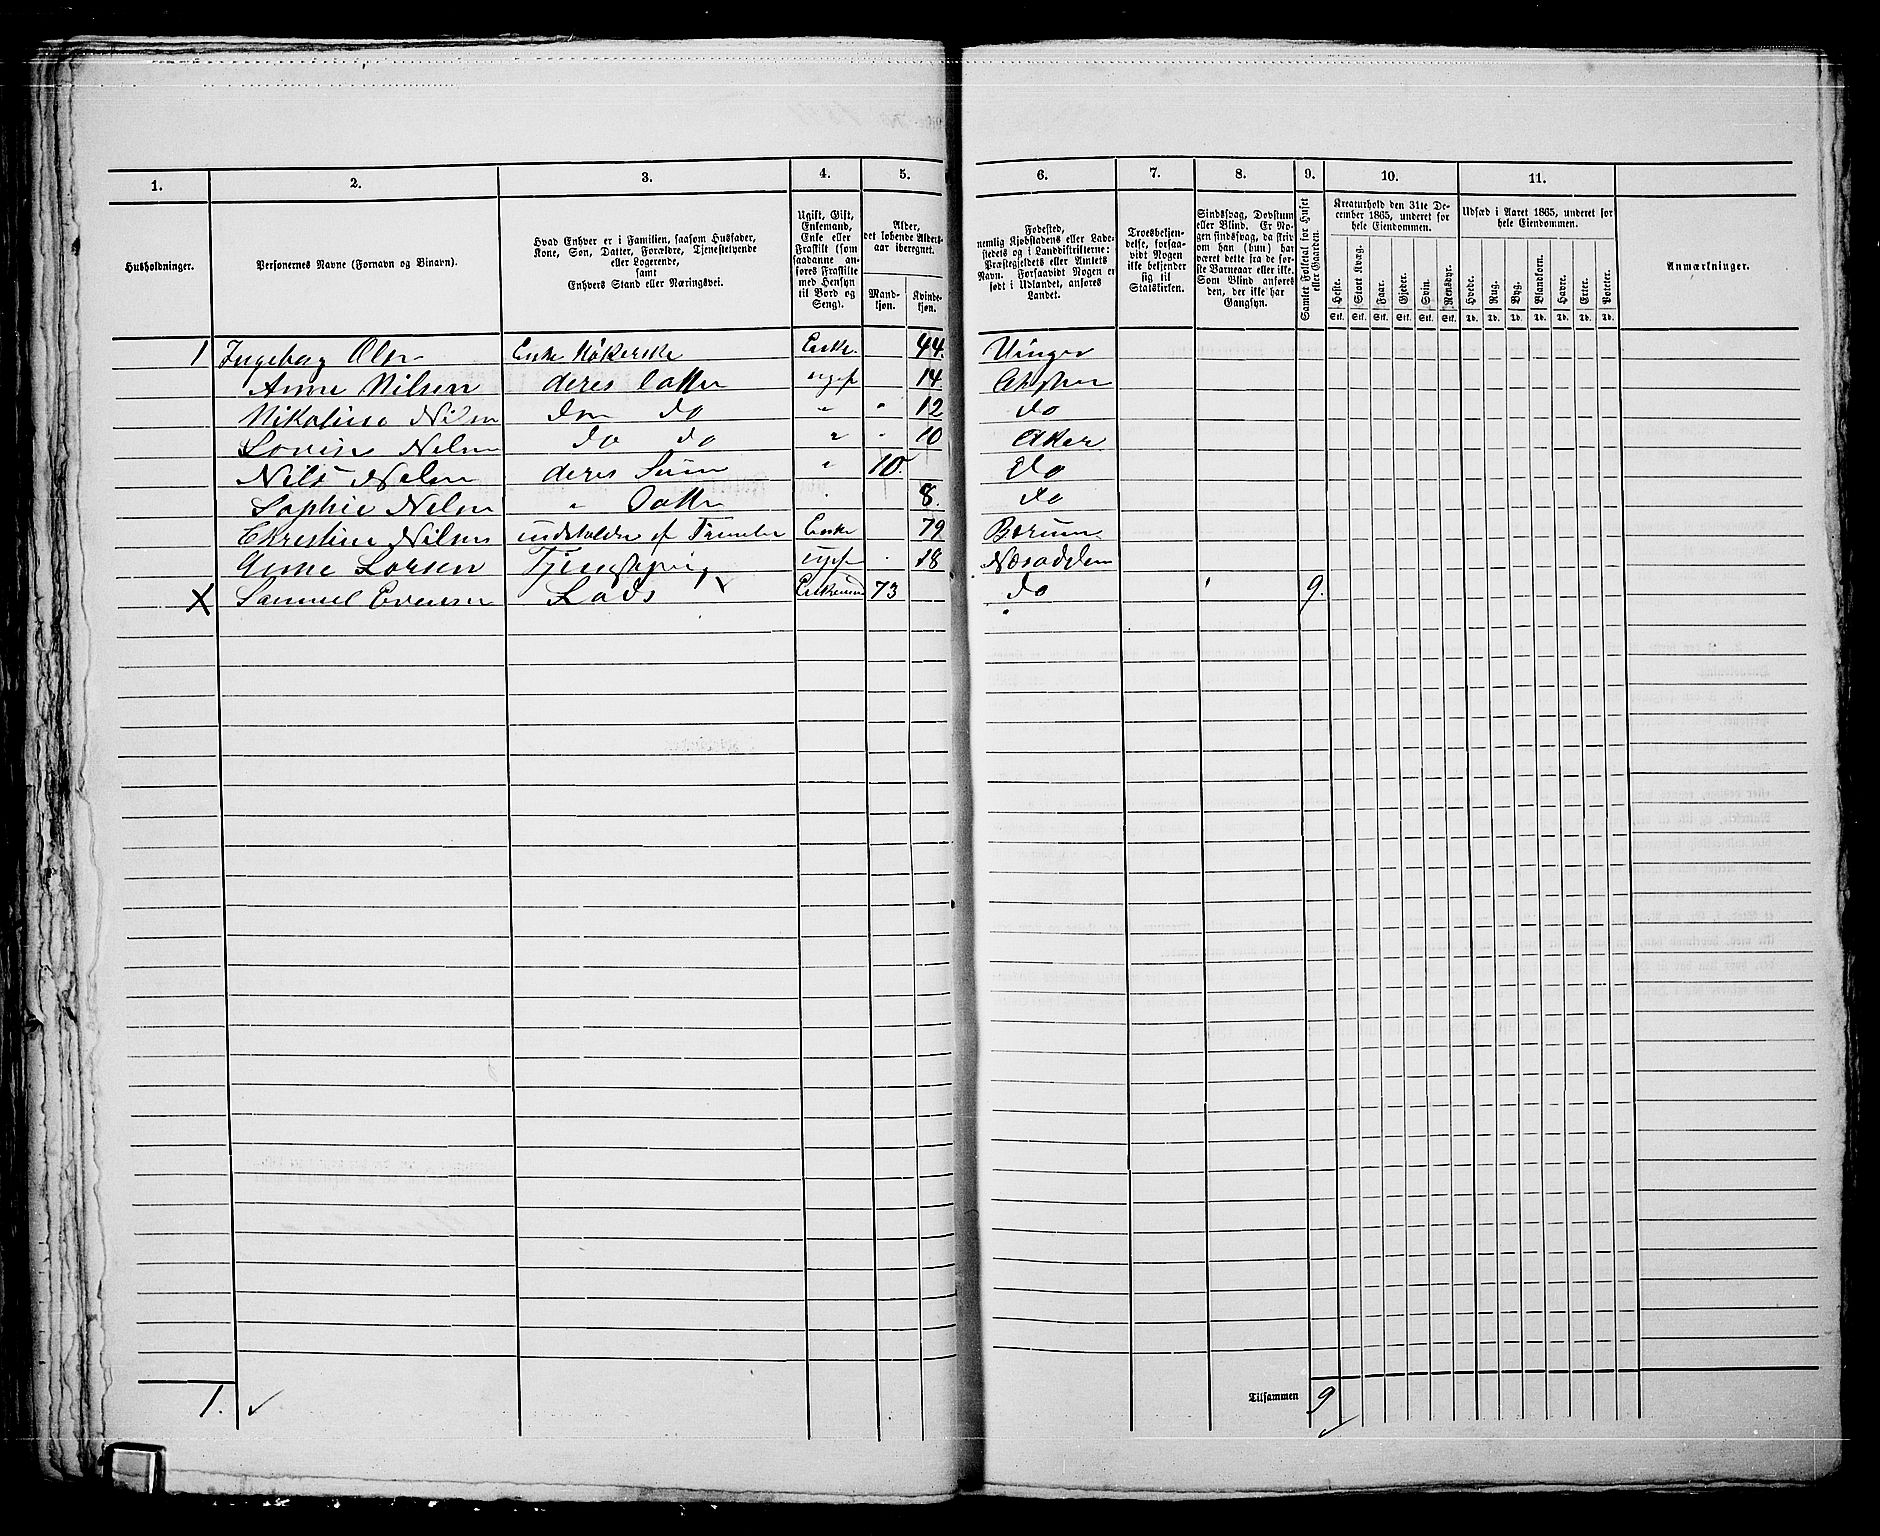 1. 2. 3. 4. 5. 6. 7. 8. 9. 10. 11.
Husholdninger.
Personernes Navne (Fornavn og Binavn).
Hvad Enhver er i Familien, saasom Husfader,
Kone, Søn, Datter, Forældre, Tjenestetyende
eller Logerende,
samt
Enhvers Stand eller Næringsvei.
Ugift, Gift,
Enkemand,
Enke eller
Fraskilt (som
saadanne an-
føres Fraskilte
med Hensyn
til Bord og
Seng).
Alder,
det løbende Alders-
aar iberegnet.
Mand-
kjøn.
Kvinde-
kjøn.
Fødested,
nemlig Kjøbstadens eller Lade-
stedets og i Landdistrikterne:
Præstegjeldets eller Amtets
Navn. Forsaavidt Nogen er
født i Udlandet, anføres
Landet.
Troesbekjen-
delse, forsaa-
vidt Nogen
ikke bekjender
sig til
Statskirken.
Sindssvag, Døvstum
eller Blind. Er No-
gen sindssvag, da skriv
om han (hun) har
været dette fra de før-
ste Barneaar eller ikke.
Som Blind anføres
den, der ikke har
Gangsyn.
Samlet Folketal for Huset
eller Gaarden.
Kreaturhold den 31te De-
cember 1865, underet for
hele Eiendommen.
Heste. Stort Kvæg. Faar. Gjeder. Svin. Rensdyr.
Stk. Stk. Stk. Stk. Stk. Stk.
Udsæd i Aaret 1865, underet for
hele Eiendommen.
Hvede. Rug. Byg. Blandkorn. Havre. Erter. Poteter.
Td. Td. Td. Td. Td. Td. Td.
Anmærkninger.
1 Ingeborg Olsn Enke Høkerske Enke. 44. Vinger
Anne Nilsen deres Datter ugift 14. Aker
Nikoline Nilsn do do " " 12 do
Lovise Nilsn do do " " 10 Aker
Nils Nilsen deres Søn " 10. do
Sophie Nilsn " Datter 8. do
Christine Nilsen underholdes af Familien Enke 79 Bærum
Anne Larsen Tjenestepige ugift 18 Næsodden
X Samuel Evensen Lods Enkemand 73 do 9.
1.
Tilsammen 9